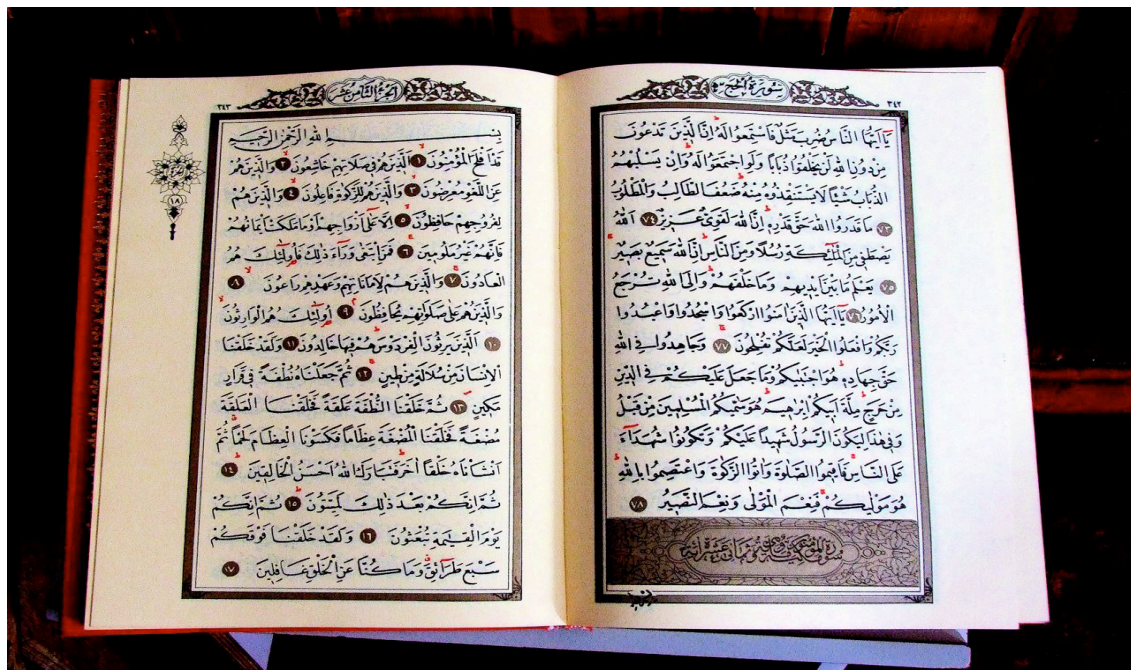 ٣٤٢ سُورَةُ الْحَجِّ
يَٓا اَيُّهَا النَّاسُ ضُرِبَ مَثَلٌ فَاسْتَمِعُوا لَهُ اِنَّ الَّذِينَ تَدْعُونَ
مِنْ دُونِ اللهِ لَنْ يَخْلُقُوا ذُبَاباً وَلَوِ اجْتَمَعُوا لَهُ وَاِنْ يَسْلُبْهُمُ
الذُّبَابُ شَيْئاً لَا يَسْتَنْقِذُوهُ مِنْهُ ضَعُفَ الطَّالِبُ وَالْمَطْلُوبُ
٧٣ مَا قَدَرُوا اللهَ حَقَّ قَدْرِهِ اِنَّ اللهَ لَقَوِىٌّ عَزِيزٌ ٧٤ اَللهُ
يَصْطَفِى مِنَ الْمَلٰٓئِكَةِ رُسُلاً وَمِنَ النَّاسِ اِنَّ اللهَ سَمِيعٌ بَصِيرٌ
٧٥ يَعْلَمُ مَا بَيْنَ اَيْدِيهِمْ وَمَا خَلْفَهُمْ وَاِلَى اللهِ تُرْجَعُ
الْاُمُورُ ٧٦ يَٓا اَيُّهَا الَّذِينَ اٰمَنُوا ارْكَعُوا وَاسْجُدُوا وَاعْبُدُوا
رَبَّكُمْ وَافْعَلُوا الْخَيْرَ لَعَلَّكُمْ تُفْلِحُونَ ٧٧ وَجَاهِدُوا فِى اللهِ
حَقَّ جِهَادِهِ هُوَ اجْتَبٰيكُمْ وَمَا جَعَلَ عَلَيْكُمْ فِى الدِّينِ
مِنْ حَرَجٍ مِلَّةَ اَبِيكُمْ اِبْرٰهِيمَ هُوَ سَمّٰيكُمُ الْمُسْلِمِينَ مِنْ قَبْلُ
وَفِى هٰذَا لِيَكُونَ الرَّسُولُ شَهِيداً عَلَيْكُمْ وَتَكُونُوا شُهَدَٓاءَ
عَلَى النَّاسِ فَاَقِيمُوا الصَّلٰوةَ وَاٰتُوا الزَّكٰوةَ وَاعْتَصِمُوا بِاللهِ
هُوَ مَوْلٰيكُمْ فَنِعْمَ الْمَوْلٰى وَنِعْمَ النَّصِيرُ ٧٨
اَلْجُزْءُ الثَّامِنُ عَشَرَ ٣٤٣
بِسْمِ اللهِ الرَّحْمٰنِ الرَّحِيمِ
قَدْ اَفْلَحَ الْمُؤْمِنُونَ ١ اَلَّذِينَ هُمْ فِى صَلَاتِهِمْ خَاشِعُونَ ٢ وَالَّذِينَ هُمْ
عَنِ اللَّغْوِ مُعْرِضُونَ ٣ وَالَّذِينَ هُمْ لِلزَّكٰوةِ فَاعِلُونَ ٤ وَالَّذِينَ هُمْ
لِفُرُوجِهِمْ حَافِظُونَ ٥ اِلَّا عَلٰٓى اَزْوَاجِهِمْ اَوْ مَا مَلَكَتْ اَيْمَانُهُمْ
فَاِنَّهُمْ غَيْرُ مَلُومِينَ ٦ فَمَنِ ابْتَغٰى وَرَٓاءَ ذٰلِكَ فَاُولٰٓئِكَ هُمُ
الْعَادُونَ ٧ وَالَّذِينَ هُمْ لِاَمَانَاتِهِمْ وَعَهْدِهِمْ رَاعُونَ ٨
وَالَّذِينَ هُمْ عَلٰى صَلَوَاتِهِمْ يُحَافِظُونَ ٩ اُولٰٓئِكَ هُمُ الْوَارِثُونَ
١٠ اَلَّذِينَ يَرِثُونَ الْفِرْدَوْسَ هُمْ فِيهَا خَالِدُونَ ١١ وَلَقَدْ خَلَقْنَا
الْاِنْسَانَ مِنْ سُلَالَةٍ مِنْ طِينٍ ١٢ ثُمَّ جَعَلْنَاهُ نُطْفَةً فِى قَرَارٍ
مَكِينٍ ١٣ ثُمَّ خَلَقْنَا النُّطْفَةَ عَلَقَةً فَخَلَقْنَا الْعَلَقَةَ
مُضْغَةً فَخَلَقْنَا الْمُضْغَةَ عِظَاماً فَكَسَوْنَا الْعِظَامَ لَحْماً ثُمَّ
اَنْشَاْنَاهُ خَلْقاً اٰخَرَ فَتَبَارَكَ اللهُ اَحْسَنُ الْخَالِقِينَ ١٤
ثُمَّ اِنَّكُمْ بَعْدَ ذٰلِكَ لَمَيِّتُونَ ١٥ ثُمَّ اِنَّكُمْ
يَوْمَ الْقِيٰمَةِ تُبْعَثُونَ ١٦ وَلَقَدْ خَلَقْنَا فَوْقَكُمْ
سَبْعَ طَرَٓائِقَ وَمَا كُنَّا عَنِ الْخَلْقِ غَافِلِينَ ١٧
١٨